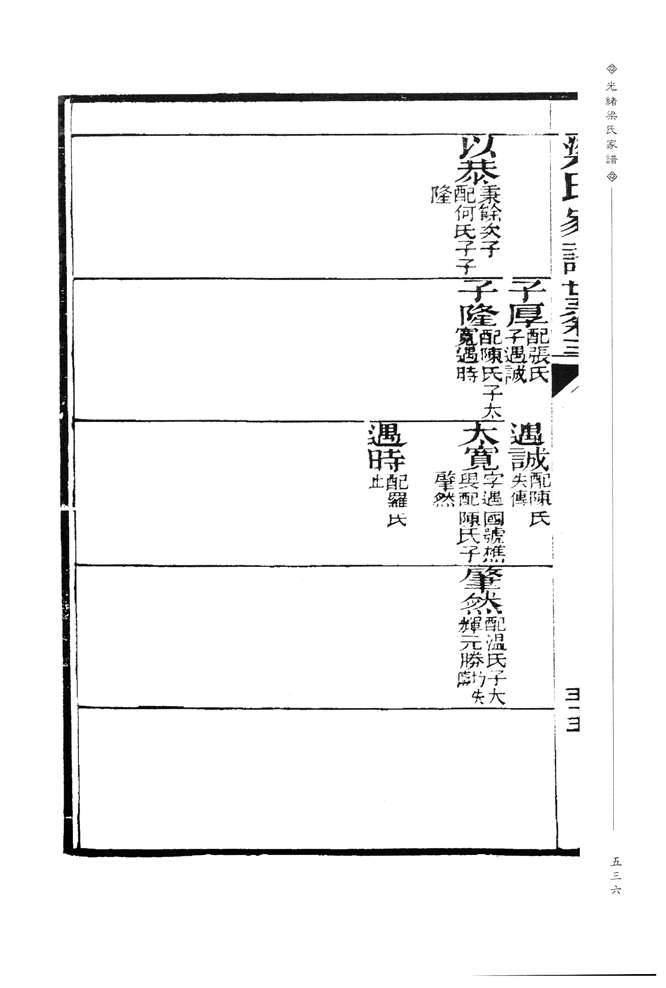 光緒梁氏家譜
五三六
梁氏家譜世系卷三
三十五
以恭
秉餘次子
配何氏子子
隆
子厚
配張氏
子遇誠
子隆
配陳氏子太
寬遇時
遇誠
配陳氏
失傳
太寬
字遇國號樵
與配陳氏子
肇然
遇時
配羅氏
止
肇然
配溫氏子大
輝元勝
失